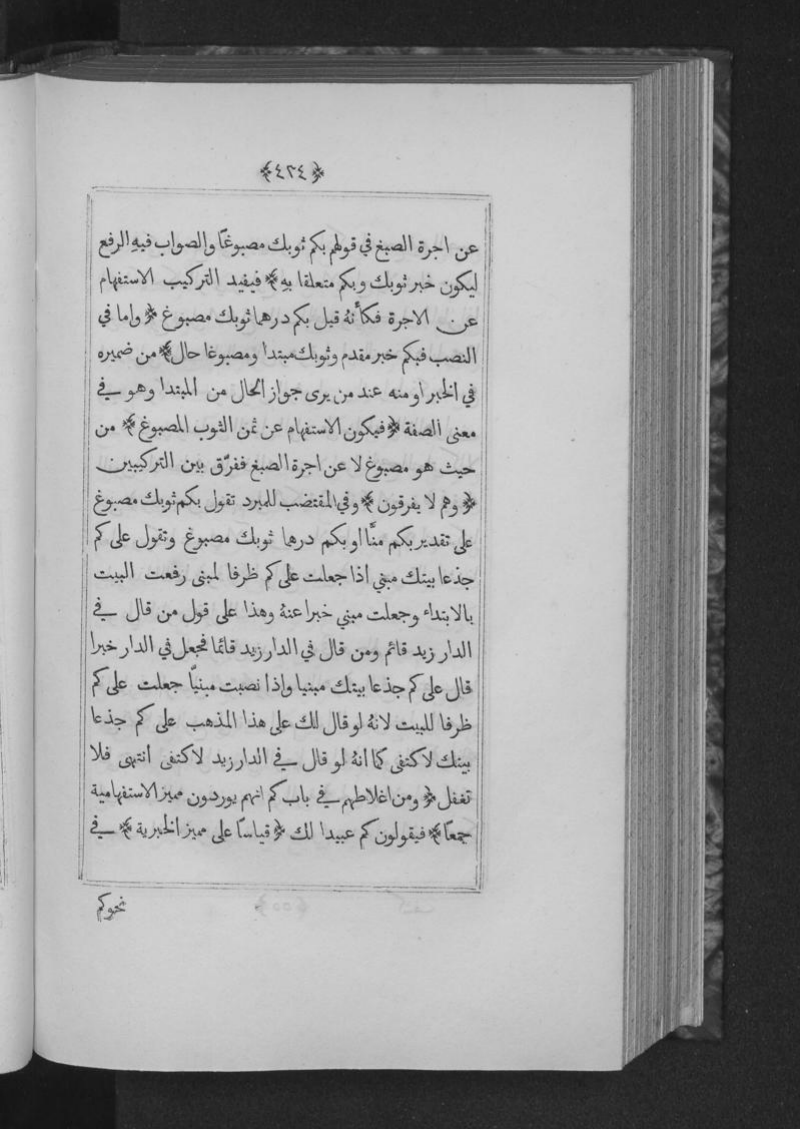 ﴿٤٢٤﴾
عن اجرة الصبغ في قولهم بكم ثوبك مصبوغًا والصواب فيهِ الرفع
ليكون خبر ثوبك وبكم متعلقا بهِ ﴾ فيفيد التركيب الاستفهام
عن الاجرة فكأنهُ قيل بكم درهما ثوبك مصبوغ ﴿ واما في
النصب فبكم خبر مقدم وثوبك مبتدا ومصبوغا حال ﴾ من ضميره
في الخبر او منه عند من يرى جواز الحال من المبتدا وهو في
معنى الصفة ﴿ فيكون الاستفهام عن ثمن الثوب المصبوغ ﴾ من
حيث هو مصبوغ لا عن اجرة الصبغ ففرّق بين التركيبين
﴿ وهم لا يفرقون ﴾ وفي المقتضب للمبرد تقول بكم ثوبك مصبوغ
على تقدير بكم منًّا او بكم درها ثوبك مصبوغ وتقول على كم
جذعا بيتك مبني اذا جعلت على كم ظرفا لمبنى رفعت البيت
بالابتداء وجعلت مبني خبرا عنهُ وهذا على قول من قال في
الدار زيد قائم ومن قال في الدار زيد قائما فجعل في الدار خبرا
قال على كم جذعا بيتك مبنيا واذا نصبت مبنيًّا جعلت على كم
ظرفا للبيت لانهُ لو قال لك على هذا المذهب على كم جذعا
بيتك لاكتفى كما انهُ لو قال في الدار زيد لاكتفى انتهى فلا
تغفل ﴿ ومن اغلاطهم في باب كم انهم يوردون مميز الاستفهامية
جمعًا ﴾ فيقولون كم عبيدا لك ﴿ قياسًا على مميز الخبرية ﴾ في
نحو كم